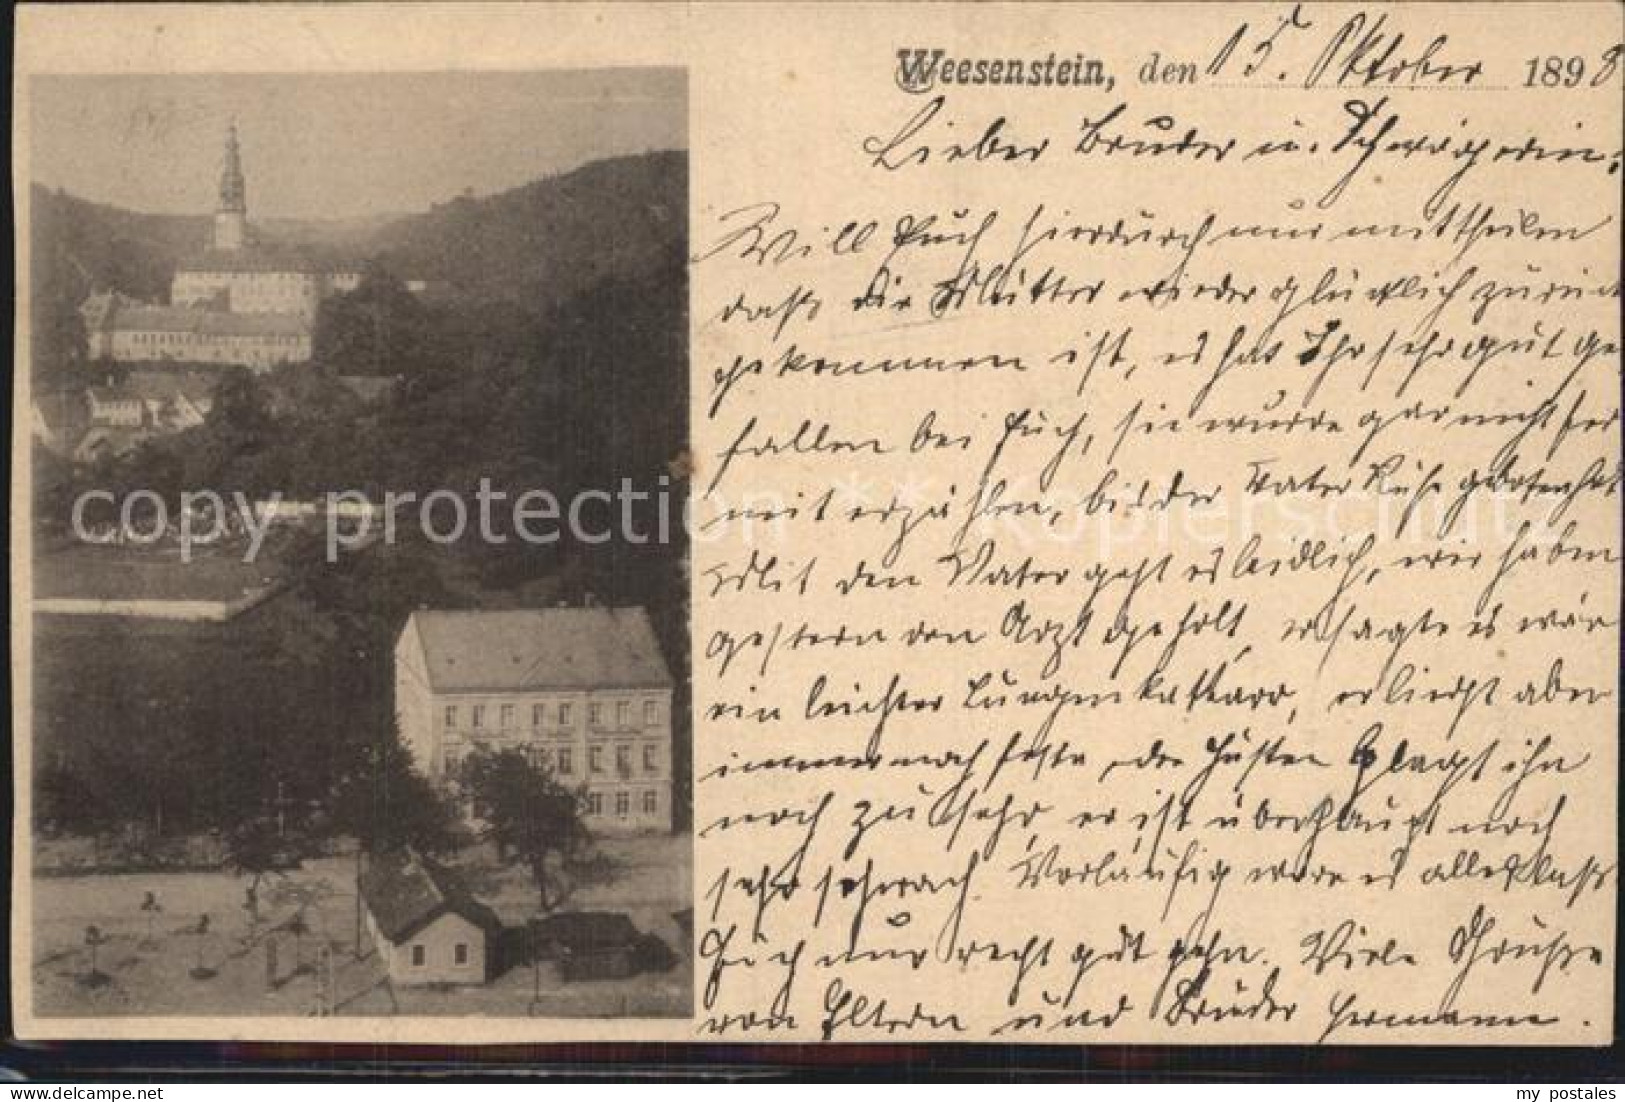 Weesenstein, den 15. Oktober 1898
Lieber Bruder u. Schwägerin!
Will Euch hierdurch nur mittheilen
daß die Mutter wieder glücklich zurück
gekommen ist, es hat Ihr sehr gut ge-
fallen bei Euch, sie wurde gar nicht fer
mit erzählen, bis der Vater Ruhe
Mit den Vater geht es leidlich, wir haben
gestern den Arzt geholt, er sagte es wär
ein leichter Lungenkatharr, er liegt aber
immer noch feste, der Husten plagt ihn
noch zu sehr, er ist überhaupt noch
sehr schwach. Vorläufig wäre es alles, laßt
Euch nur recht gut gehn. Viele Grüße
von Eltern und Bruder Hermann.
copy protection ** Kopierschutz
my postales